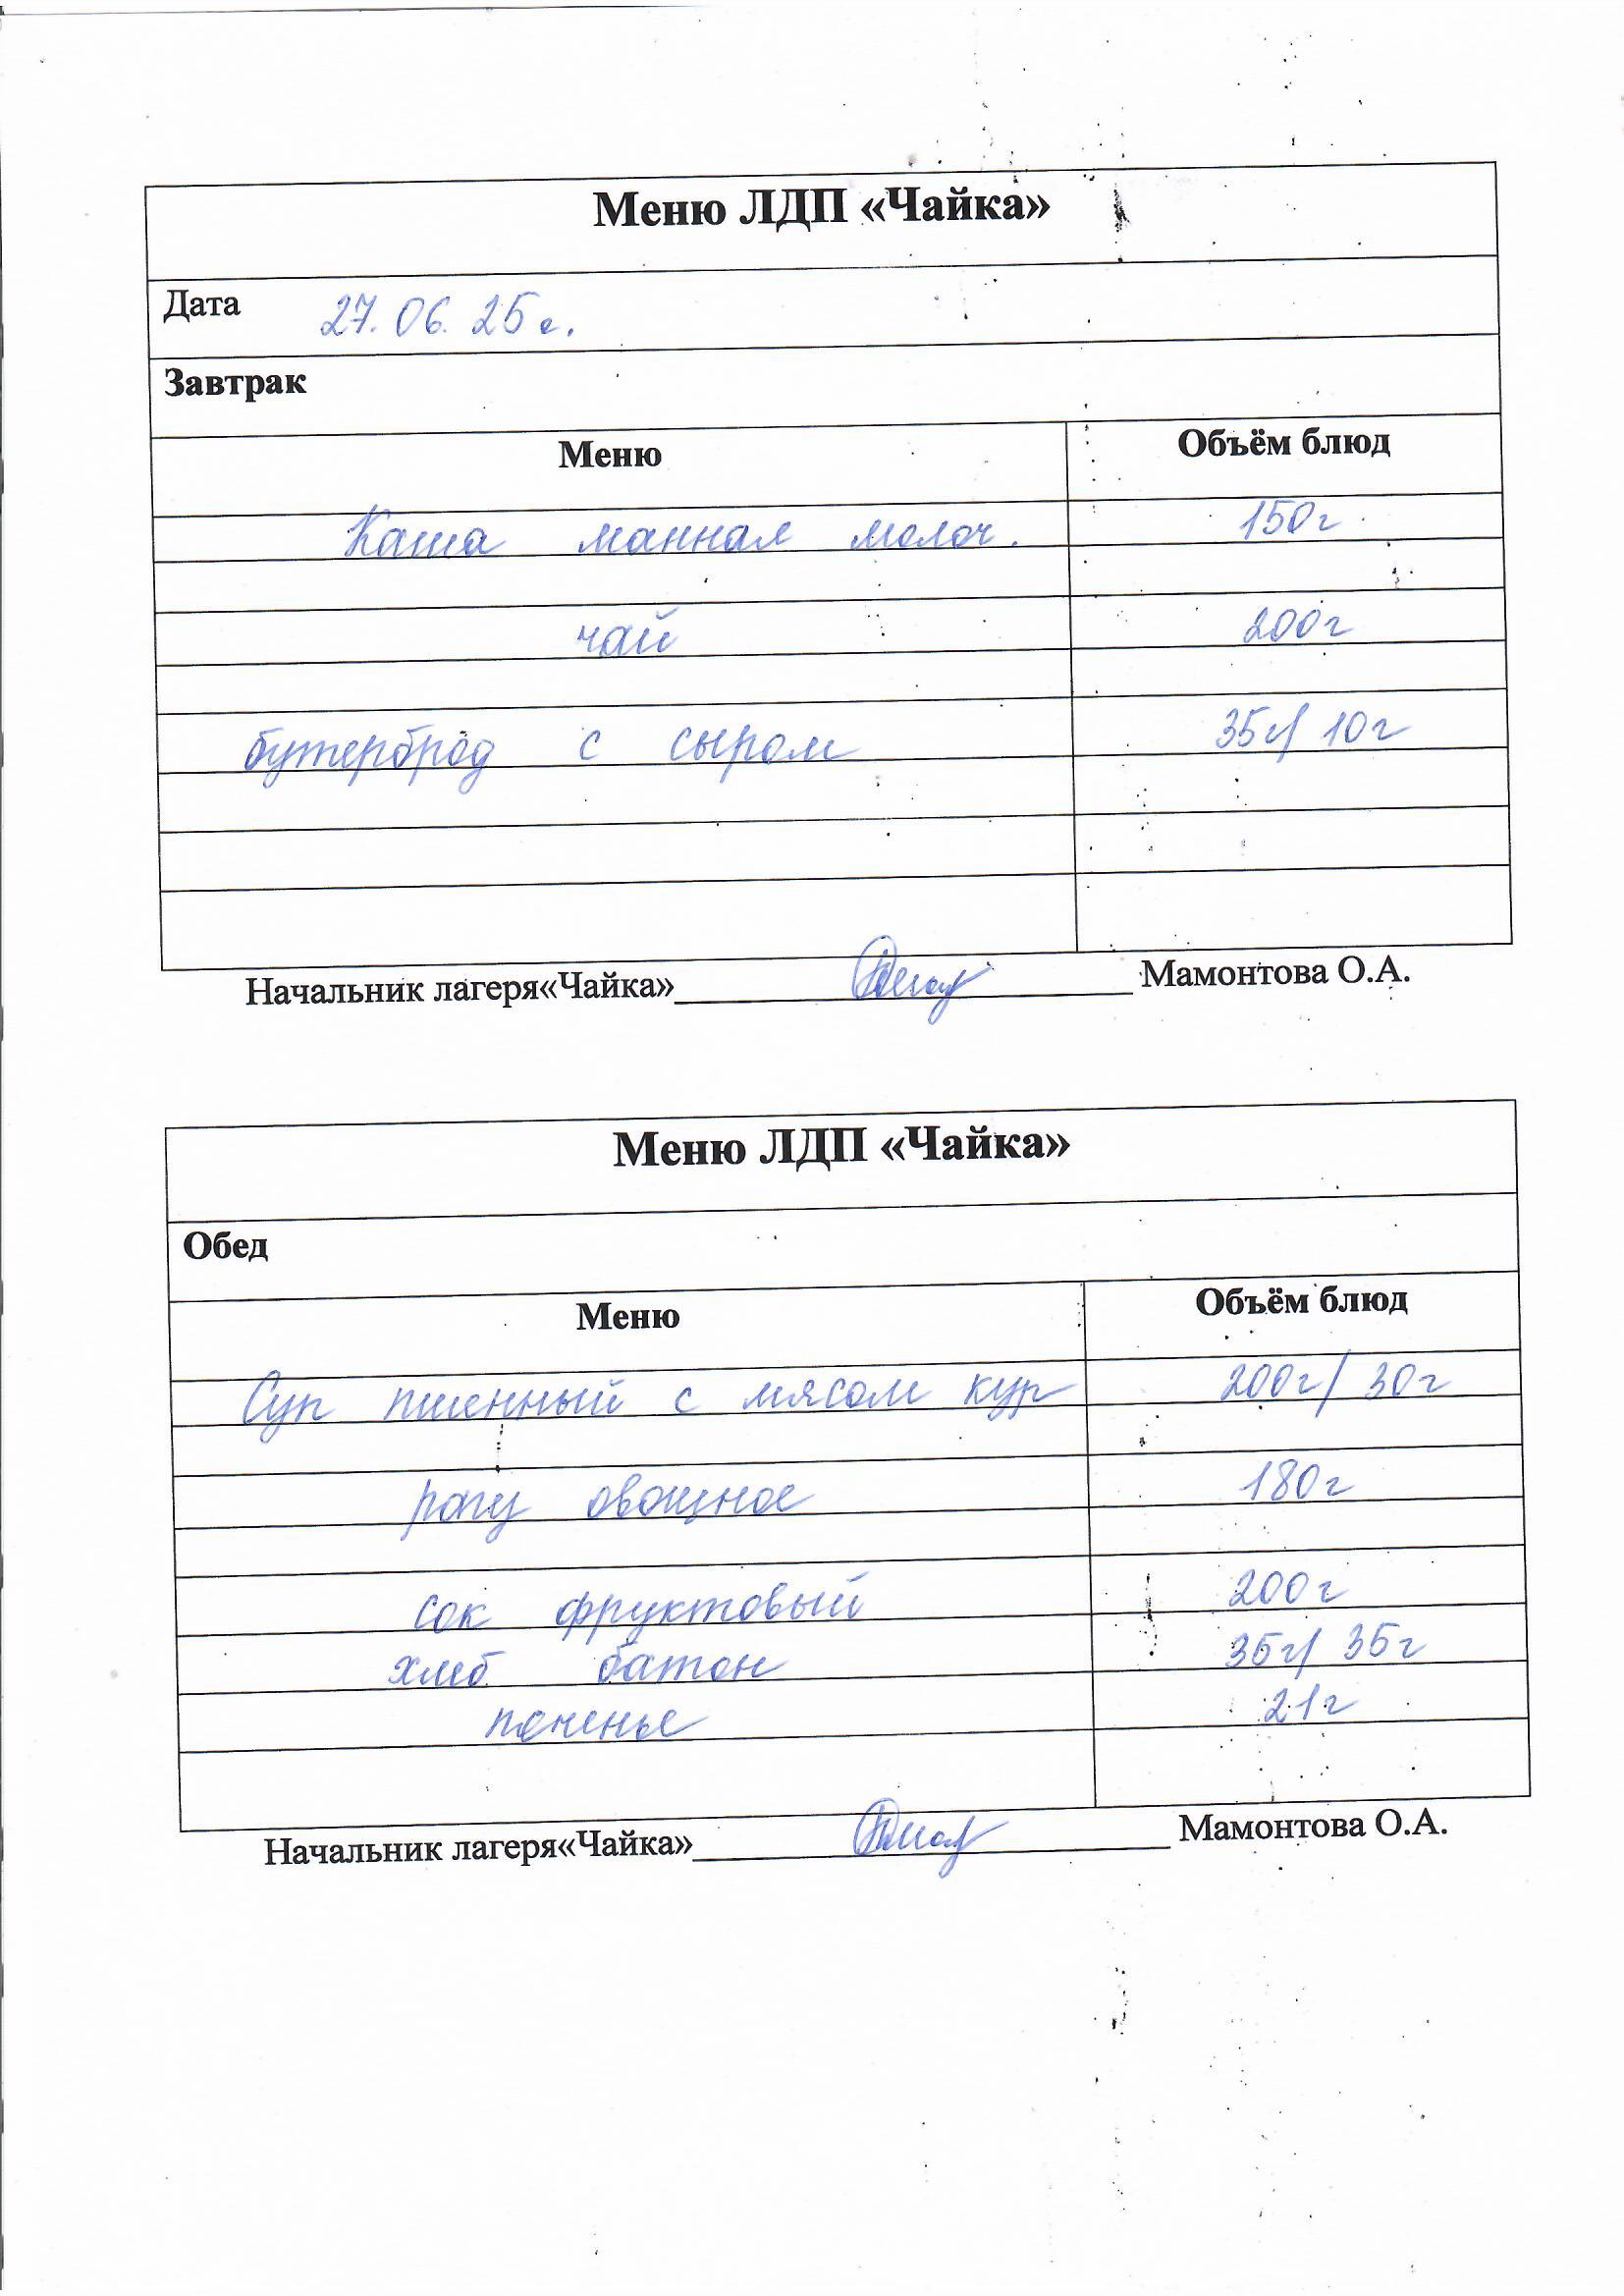 Меню ЛДП «Чайка»
Дата 27.06.25г.
Завтрак
Меню Объём блюд
Каша манная молоч. 150г
чай 200г
бутерброд с сыром 35г/ 10г
Начальник лагеря«Чайка» Мамонтова О.А.
Меню ЛДП «Чайка»
Обед
Меню Объём блюд
Суп пшенный с мясом кур 200г/ 30г
рагу овощное 180г
сок фруктовый 200г
хлеб батон 35г/ 35г
печенье 21г
Начальник лагеря«Чайка» Мамонтова О.А.